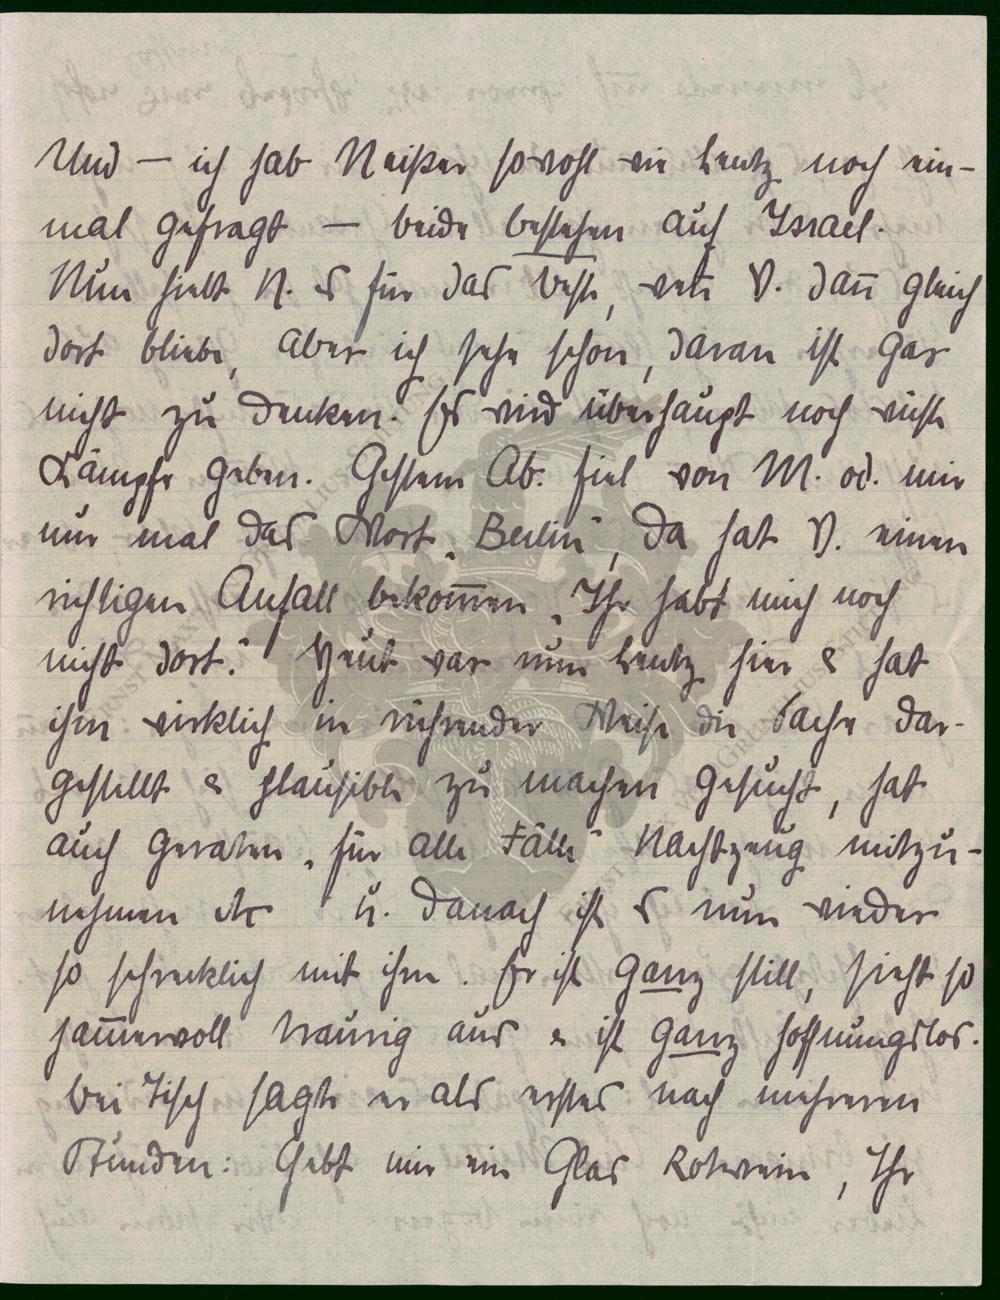 Und – ich hab Neißer sowohl wie Lentz noch ein-
mal gefragt – beide bestehen auf Israel.
Nun hielt N. es für das beste, wenn V. dan̄ gleich
dort bliebe, aber ich sehe schon, daran ist gar
nicht zu denken. Es wird überhaupt noch viele
Kämpfe geben. Gestern Ab. fiel von M. od. mir
nur mal das Wort „Berlin", da hat V. einen
richtigen Anfall bekom̄en „Ihr habt mich noch
nicht dort." Heut war nun Lentz hier & hat
ihm wirklich in rührender Weise die Sache dar-
gestellt & plausible zu machen gesucht, hat
auch geraten „für alle Fälle" Nachtzeug mitzu-
nehmen etc u. danach ist es nun wieder
so schrecklich mit ihm. Er ist ganz still, sieht so
jam̄ervoll traurig aus & ist ganz hoffnungslos.
Bei Tisch sagte er als erstes nach mehreren
Stunden: Gebt mir ein Glas Rotwein, Ihr